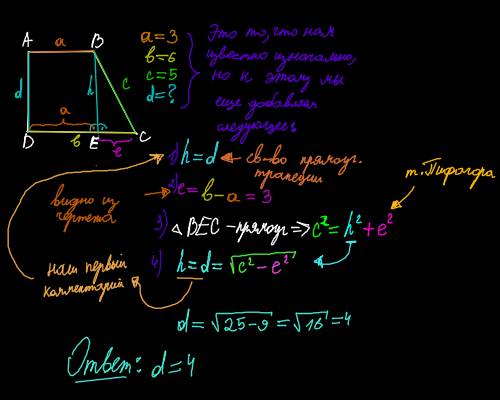 A a B
d h c
a
D в E e C
a = 3
в = 6
c = 5
d = ?
Это то, что нам
известно изначально,
но к этому мы
еще добавили
следующее:
1) h = d ← св-во прямоуг.
трапеции
видно из
чертежа
2) e = в - a = 3
т. Пифагора
3) △ BEC - прямоуг => c² = h² + e²
4) h = d = √c² - e²
наш первый
комментарий
d = √25 - 9 = √16 = 4
Ответ: d = 4